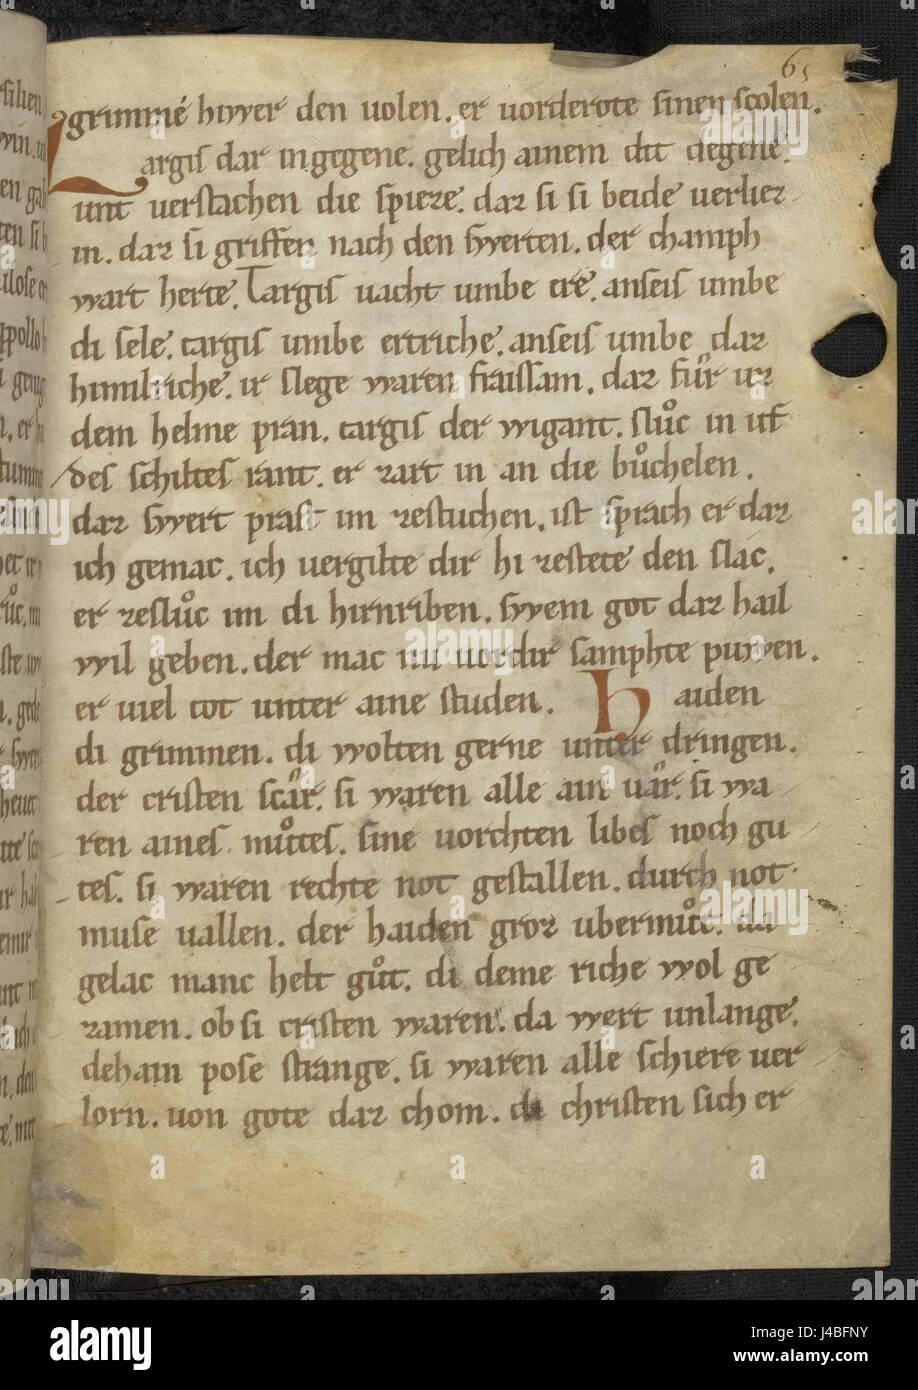 65
grimme hiwer den uolen. er uorderote sinen scolen.
Targis dar ingegene. gelich ainem dit degene.
unt uerstachen die spieze. daz si si beide uerliez
in. daz si griffen nach den swerten. der champh
wart herte. Targis uacht umbe ere. anseis umbe
di sele. targis umbe ertriche. anseis umbe daz
himilriche. ir slege waren fraissam. daz fůr uz
dem helme pran. targis der wigant. slůc in uf
des schiltes rant. er zart in an die bůchelen.
daz swert prast im zestuchen. ist sprach er daz
ich gemac. ich uergilte dir hi zestete den slac.
er zeslůc im di hirnriben. swem got daz hail
wil geben. der mac im uordir samphte puwen.
er uiel tot unter aine studen. Haiden
di grimmen. di wolten gerne unter dringen.
der cristen scar. si waren alle ain uar. si wa
ren aines můtes. sine uorchten libes noch gu
tes. si waren rechte not gestallen. durch not
muse uallen. der haiden groz ubermůt. da
gelac manc helt gůt. di deme riche wol ge
zamen. ob si cristen waren. da wert unlange.
dehain pose strange. si waren alle schiere uer
lorn. uon gote daz chom. di christen sich er
alamy
Image ID: J4BFNY
www.alamy.com